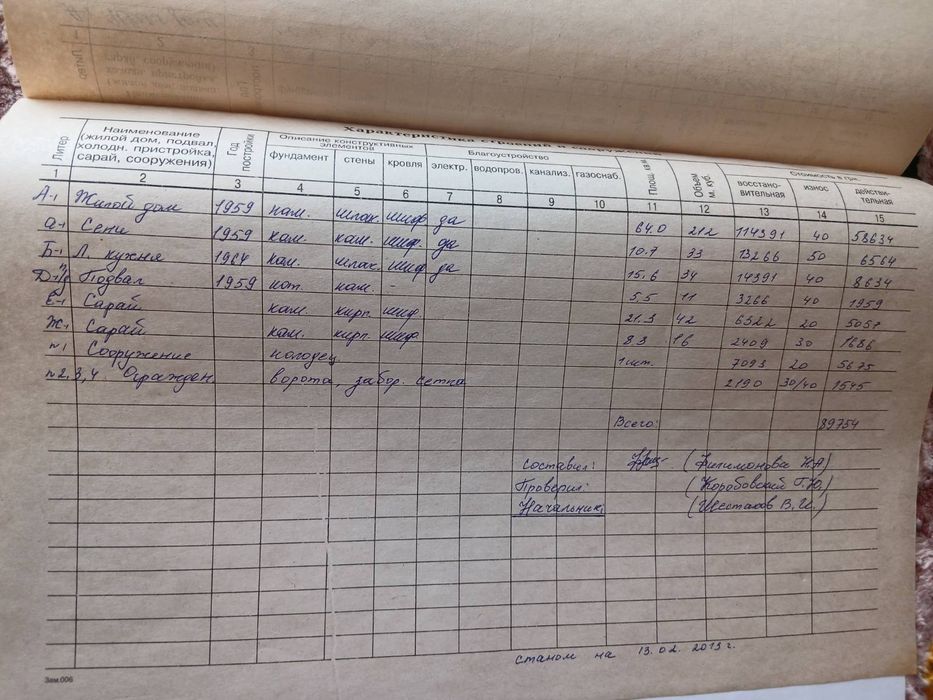 Характеристика строений и сооружений
Литер
Наименование (жилой дом, подвал, холодн. пристройка, сарай, сооружения)
Год постройки
Описание конструктивных элементов
фундамент стены кровля
Благоустройство
электр. водопров. канализ. газоснаб.
Площ. кв.м.
Объем м. куб.
Стоимость в грн.
восстано-вительная износ действи-тельная
1 2 3 4 5 6 7 8 9 10 11 12 13 14 15
А-1 Жилой дом 1959 кам. шлак. шиф. да 64.0 212 114391 40 58634
а-1 Сени 1959 кам. кам. шиф. да 10.7 33 13266 50 6564
Б-1 Л. кухня 1964 кам. шлак. шиф да 15.6 34 14391 40 8634
Д-п/д Подвал 1959 кот. кам. - 5.5 11 3266 40 1959
Е-1 Сарай кам. кирп. шиф. 21.3 42 6322 20 5057
Ж-1 Сарай кам. кирп. шиф. 8.3 16 2409 30 1686
n1 Сооружение колодец 1 шт. 7093 20 5675
n2,3,4 Огражден. ворота, забор. сетка 2190 30/40 1545
Всего: 89754
Составил: (Филимонова Н.А)
Проверил: (Коробовский Г.Ю.)
Начальник (Шесталов В.И.)
станом на 13.02.2013 г.
Зам.006